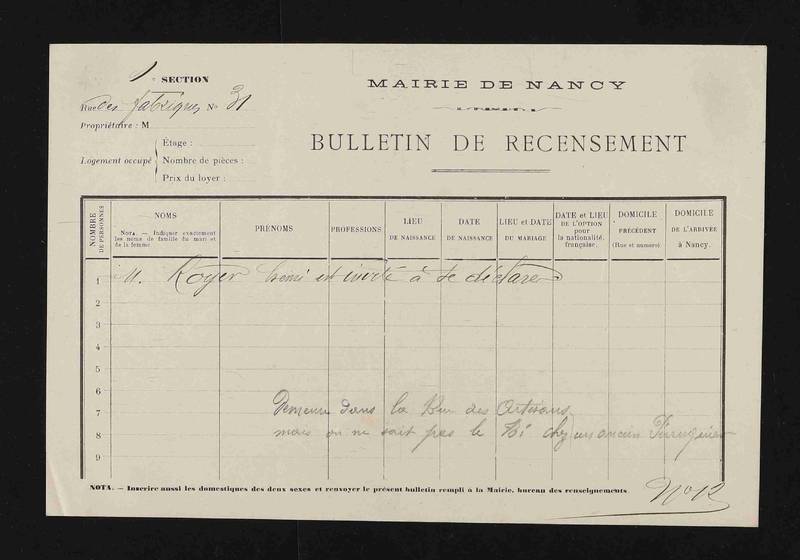 1 SECTION
Rue des fabriques No 31
Propriétaire : M
Logement occupé
Étage :
Nombre de pièces :
Prix du loyer :
MAIRIE DE NANCY
BULLETIN DE RECENSEMENT
NOMBRE DE PERSONNES
NOMS
NOTA. — Indiquer exactement les noms de famille du mari et de la femme.
PRENOMS
PROFESSIONS
LIEU DE NAISSANCE
DATE DE NAISSANCE
LIEU et DATE DU MARIAGE
DATE et LIEU DE L'OPTION pour la nationalité française.
DOMICILE PRÉCÉDENT (Rue et numéro)
DOMICILE DE L'ARRIVÉE à Nancy.
1 M. Royer est invité à se déclarer
2
3
4
5
6
7 Demeure dans la Rue des Artisans
8 mais on ne sait pas le No chez un ancien
9
NOTA. — Inscrire aussi les domestiques des deux sexes et renvoyer le présent bulletin rempli à la Mairie, bureau des renseignements.
No 12